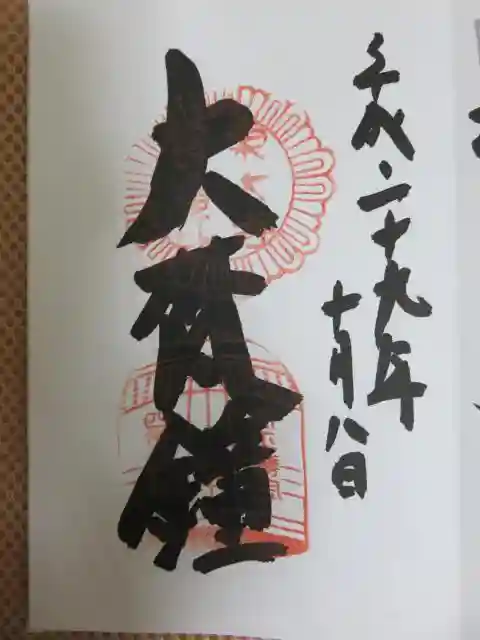 平成二十九年
十月八日
大梵鐘